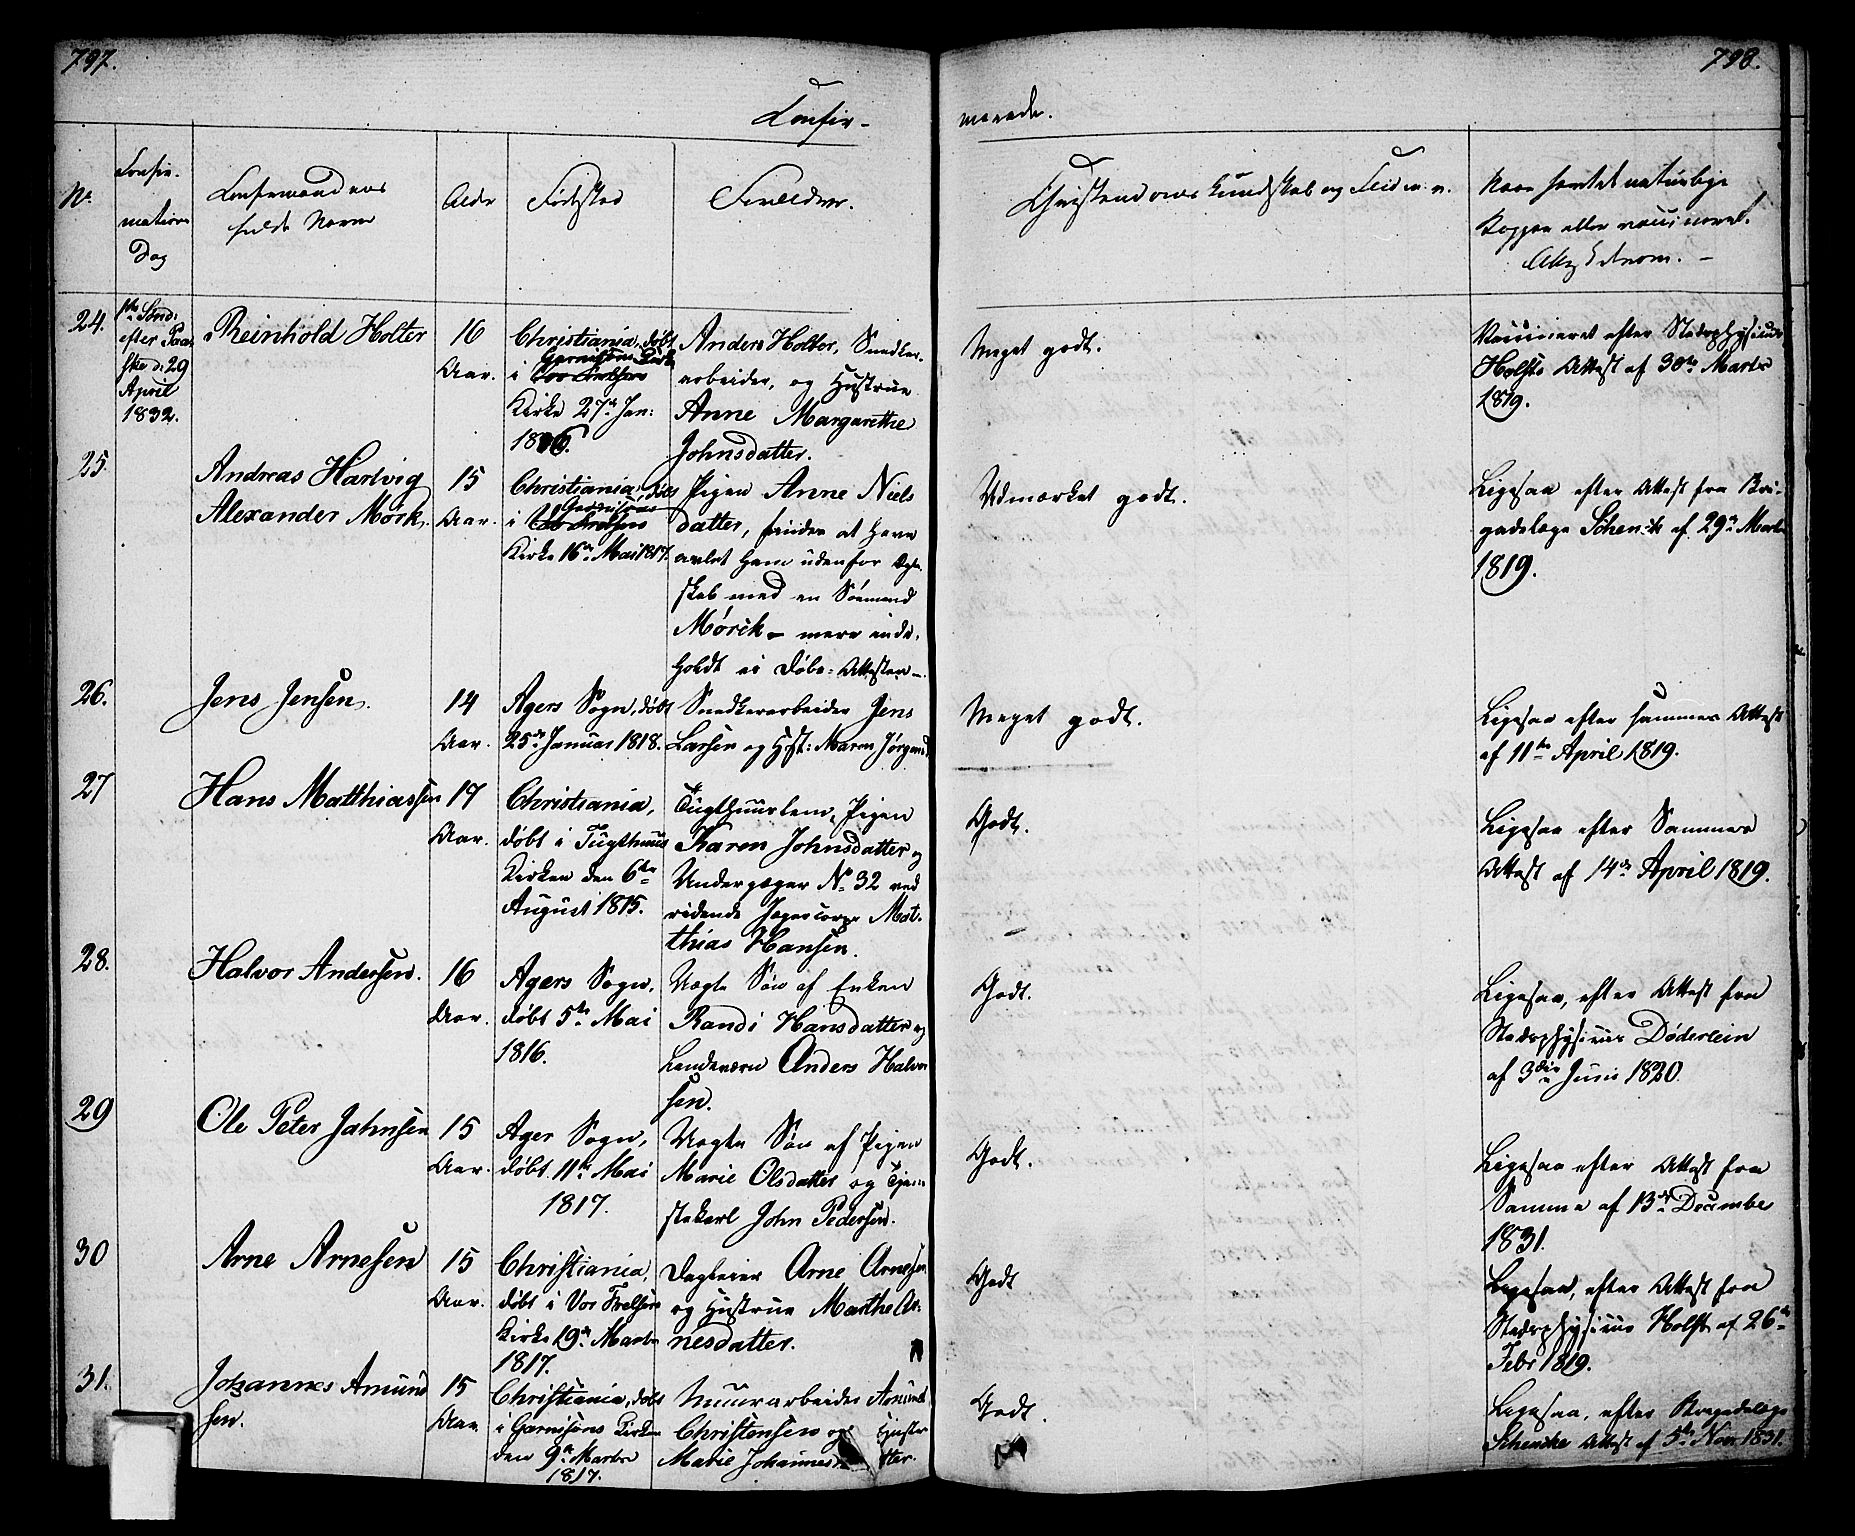 797.
798.
Confir-
merede.
No.
Confir-
mations
Dag
Confirmandens
fulde Navn
Alder
Fødested
Forældre.
Christendoms kundskab og Flid m. v.
Naar havt de naturlige
Kopper eller vaccineret.
24.
1ste Sønd:
efter Paa
ske d: 29
April
1832.
Reinhold Holter
16
Aar.
Christiania, døbt
Garnisons Kirke
i Vor Frelsers
Kirke 27de Jan:
1816.
Anders Holter, Snedker-
arbeider, og Hustrue
Anne Margarethe
Johnsdatter.
Meget godt.
Vaccineret efter Stadsphysicus
Holsts Attest af 30te Marts
1819.
25.
Andreas Hartvig
Alexander Mørk.
15
Aar.
Christiania, døbt
Garnisons
i Vor Frelsers
Kirke 16de Mai 1817.
Pigen Anne Niels
datter, at have
avlet ham udenfor Ægte-
skab med en Sømand
Mørck - mere inde-
holdt ei Døbe-Attesten -.
Udmærket godt.
Ligesaa efter Attest fra Bri-
gadelæge Schenck af 29de Marts
1819.
26.
Jens Jensen.
14
Aar.
Agers Sogn, døbt
25de Januar 1818.
Snedkerarbeider Jens
Larsen og Hst: Maren Jørgensd.
Meget godt.
Ligesaa efter sammes Attest
af 11te April 1819.
27
Hans Matthiassen
17
Aar.
Christiania,
døbt i Tugthuus
Kirken den 6te
August 1815.
Tugthuuslem, Pigen
Karen Johnsdatter og
Underjæger No 32 ved
ridende Jægercorps Mat-
thias Hansen.
Godt.
Ligesaa efter Sammes
Attest af 14de April 1819.
28.
Halvor Andersen.
16
Aar.
Agers Sogn,
døbt 5te Mai
1816.
Uægte Søn af Enken
Randi Hansdatter og
Landeværn Anders Halvor
sen.
Godt.
Ligesaa, efter Attest fra
Stadsphysicus Døderlein
af 3die Juni 1820.
29
Ole Peter Jahnsen
15
Aar.
Ager Sogn,
døbt 11te Mai
1817.
Uægte Søn af Pigen
Marie Olsdatter og Tjene
stekarl John Pedersen.
Godt.
Ligesaa efter Attest fra
Samme af 13de December
1831.
30
Arne Arnesen
15
Aar.
Christiania,
døbt i Vor Frelsers
Kirke 19de Marts
1817.
Dagleier Arne Arnesen
og Hustrue Marthe Ar-
nesdatter.
Godt
Ligesaa, efter Attest fra
Stadsphysicus Holst af 26de
Febr 1819.
31.
Johannes Amund
sen.
15
Aar.
Christiania, døbt
i Garnisons Kirken
den 9de Marts
1817.
Muurarbeider Amund
Christensen og Hustr
Marie Johannes tter.
Godt.
Ligesaa, efter Brigadelæge
Schencke Attest af 5te Nov: 1831.